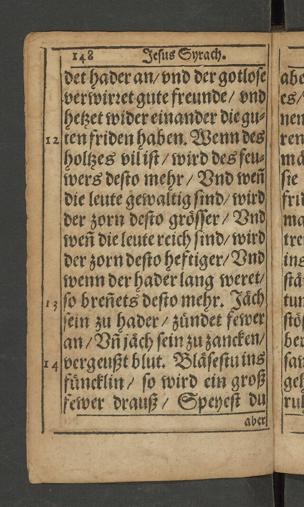 148 Jesus Syrach.
det hader an/ vnd der gotlose
verwirret gute freunde/ vnd
hetzet wider einander die gu-
12 ten friden haben. Wenn des
holtzes vil ist/ wird des feu-
wers desto mehr/ Vnd weñ
die leute gewaltig sind/ wird
der zorn desto grösser/ Vnd
weñ die leute reich sind/ wird
der zorn desto hefftiger/ Vnd
wenn der hader lang weret/
13 so breñets desto mehr. Jäch
sein zu hader/ zündet fewer
an/ Vñ jäch sein zu zancken/
14 vergeußt blut. Bläsestu ins
füncklin/ so wird ein groß
fewer drauß/ Speyest du
aber